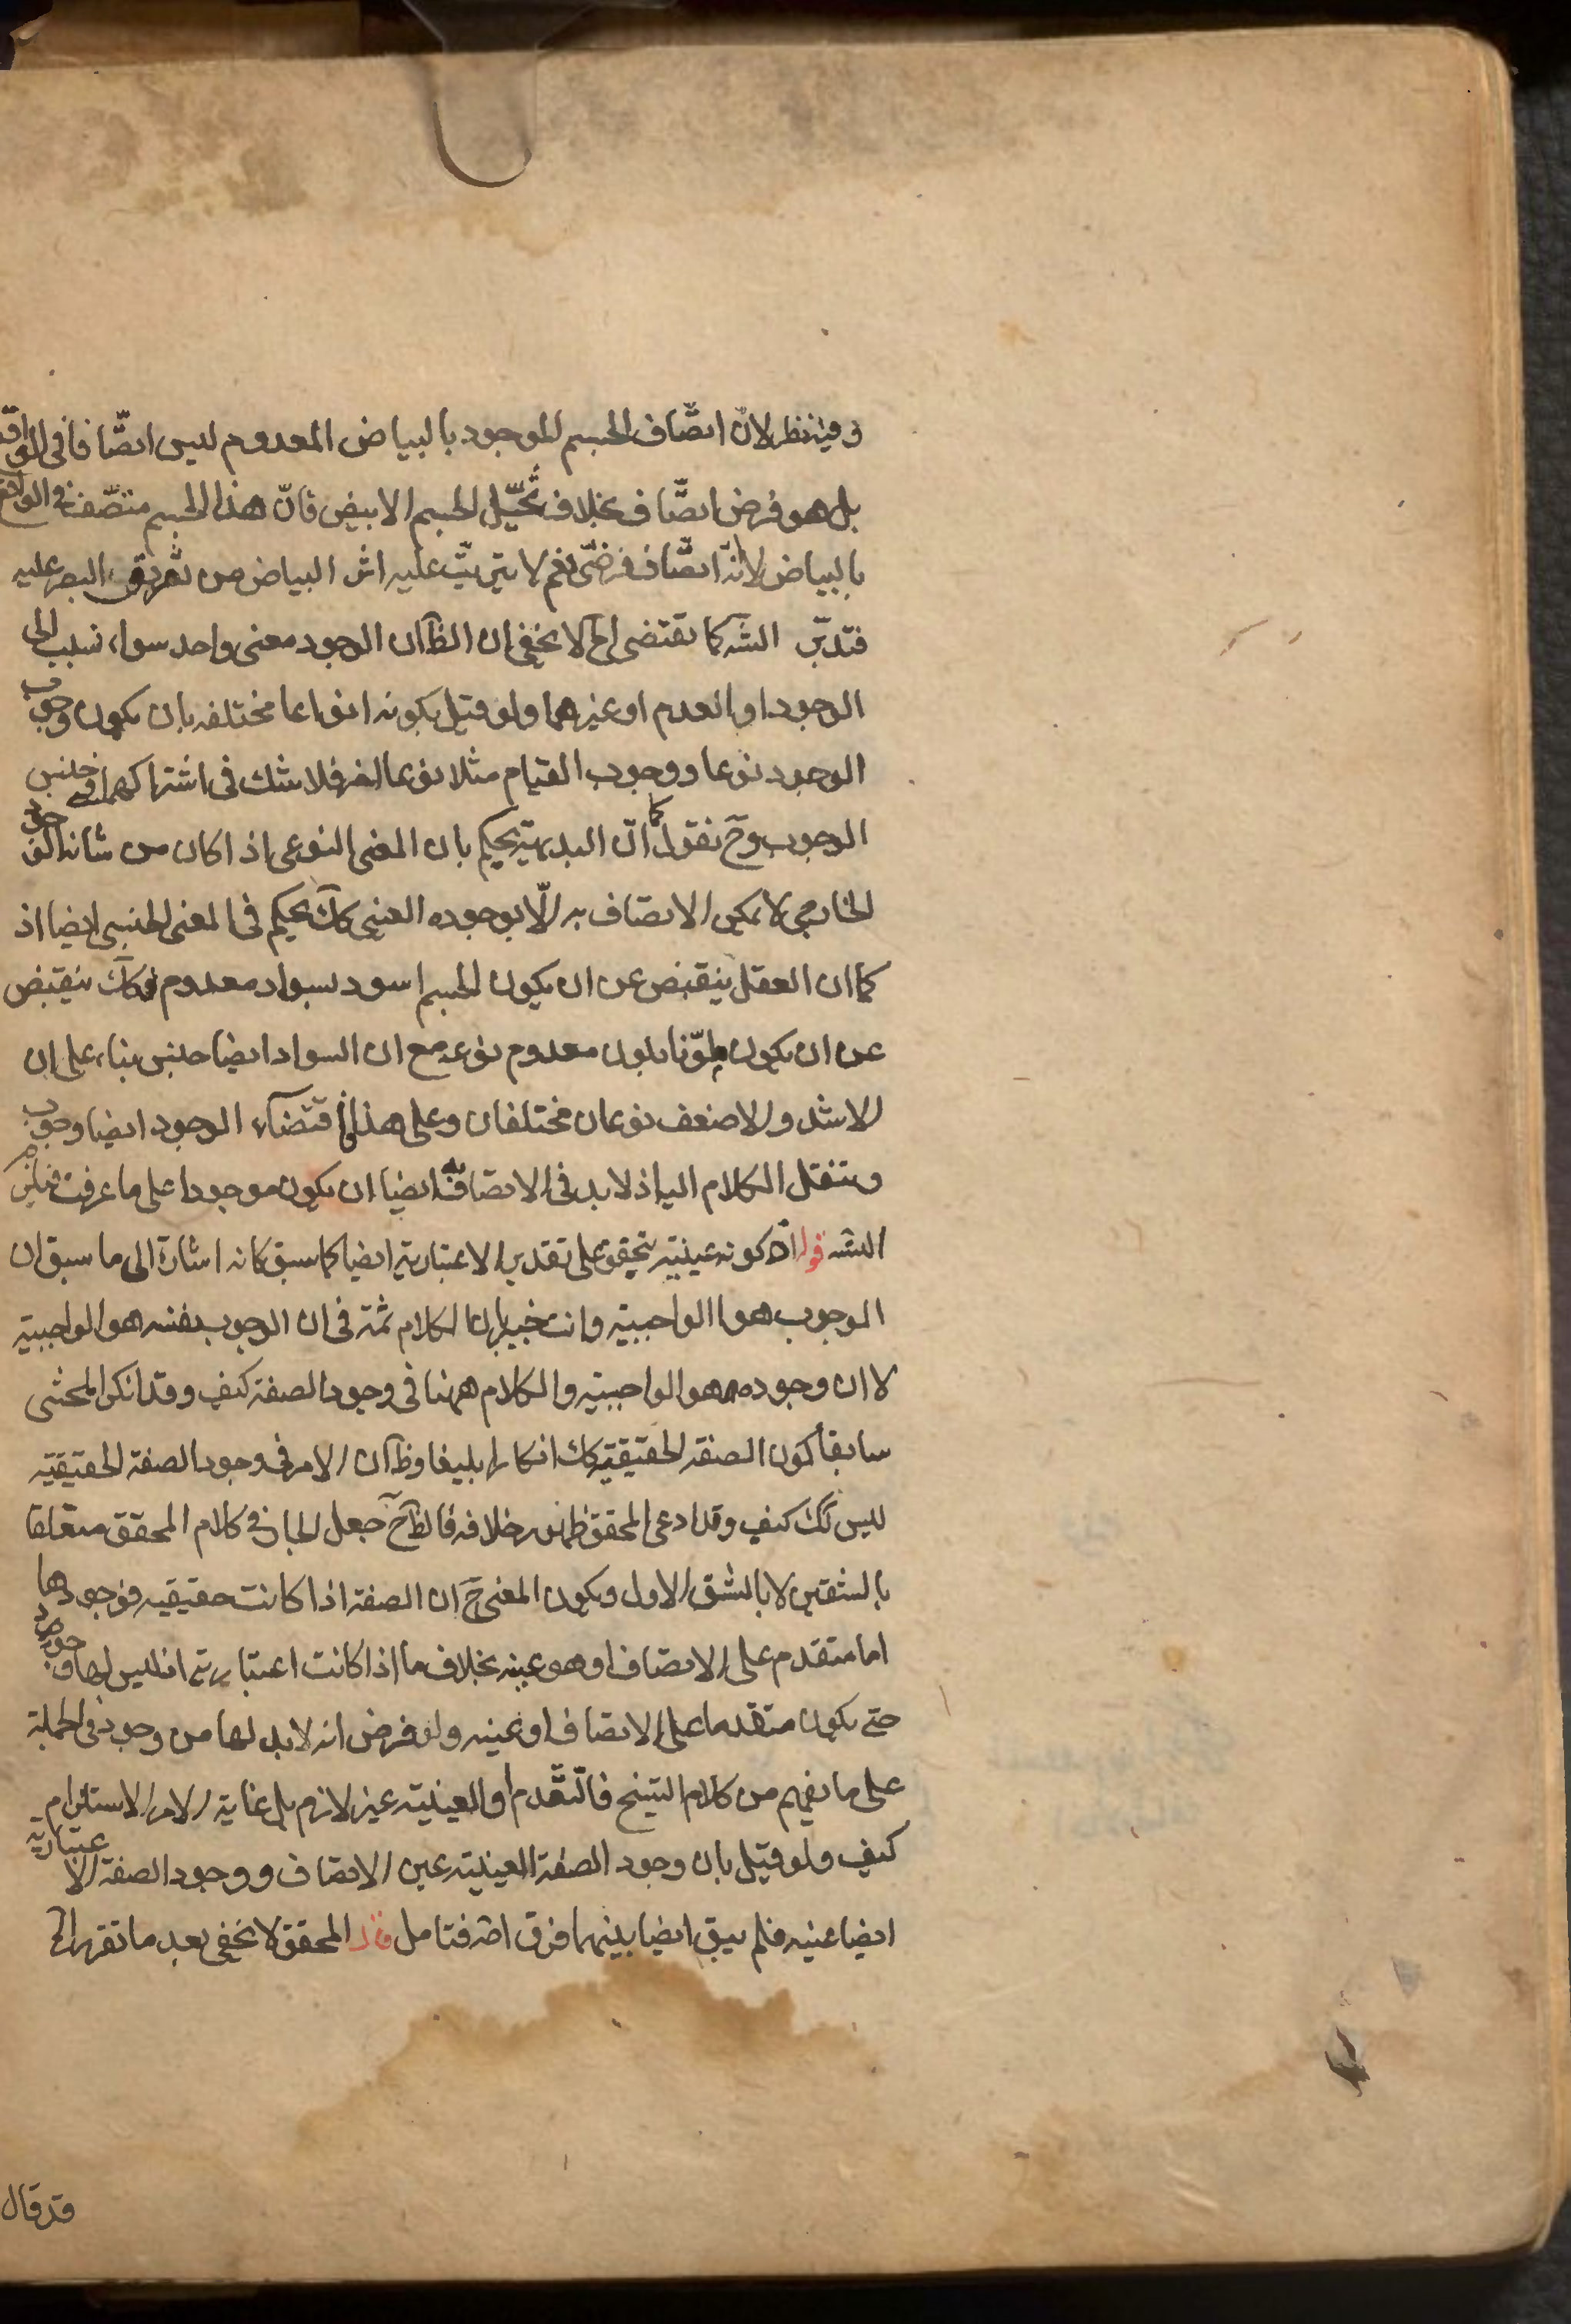 وفيه نظر لانّ اتصّاف الجسم الموجود بالبياض المعدوم ليس اتصّافا فى الواقع
بل هو فرض اتصّاف بخلاف تخيّل الجسم الابيض فانّ هذا الجسم متصّف فى الواقع
بالبياض لانّه اتصّاف فرضىّ نعم لا يترتّب عليه اثر البياض من تفريق البصر عليه
فتدبّر الشه كما يقتضى الخ لا يخفى ان الظ ان الوجوب معنى واحد سواء نسب الى
الوجود او العدم او غيرهما ولو قيل بكونه انواعا مختلفه بان يكون وجوب
الوجود نوعا ووجوب القيام مثلا نوعا اخر فلا شك فى اشتراكهما فى جنس
الوجوب وح نقول كما انّ البديهة يحكم بان المعنى النوعى اذا كان من شانه الوجود
الخارجى لا يمكن الاتصاف به الّا بوجوده العينى كك يحكم فى المعنى الجنسى ايضا اذ
كما ان العقل ينقبض عن ان يكون الجسم اسود بسواد معدوم فكك ينقبض
عن ان يكون ملوّنا بلون معدوم نوعه مع ان السواد ايضا جنس بناء على ان
الاشد والاضعف نوعان مختلفان وعلى هذا اقتضاء الوجود ايضا وجوب
وننقل الكلام اليه اذ لا بد فى الاتصاف به ايضا ان يكون موجودا على ما عرفت فيلزم
الشه قوله اذ كونه عينية يتحقق على تقدير الاعتبارية ايضا كما سبق كانه اشارة الى ما سبق ان
الوجوب هو الواجبية وانت خبير بان الكلام ثمة فى ان الوجوب نفسه هو الواجبية
لا ان وجوده هو الواجبية والكلام ههنا فى وجود الصفة كيف وقد انكر المحشى
سابقا كون الصفة الحقيقية كك انكارا بليغا وظ ان الامر فى وجود الصفة الحقيقيه
ليس كك كيف وقد ادعى المحقق ظهور خلافه فالظ ح جعل الجار فى كلام المحقق متعلقا
بالشقين لا بالشق الاول ويكون المعنى ح ان الصفة اذا كانت حقيقيه فوجودها
اما متقدم على الاتصاف او هو عينه بخلاف ما اذا كانت اعتبارية اذ ليس لها وجود
حتى يكون متقدما على الاتصاف او عينه ولو فرض انه لا بد لها من وجود فى الجملة
على ما يفهم من كلام الشيخ فالتّقدم او العينية غير لازم بل غاية الامر الاستلزام
كيف ولو قيل بان وجود الصفة العينية عين الاتصاف ووجود الصفة الاعتبارية
ايضا عينه فلم يبق ايضا بينهما فرق اصه فتامل قال المحقق لا يخفى بعد ما تقرر الخ
قد قال